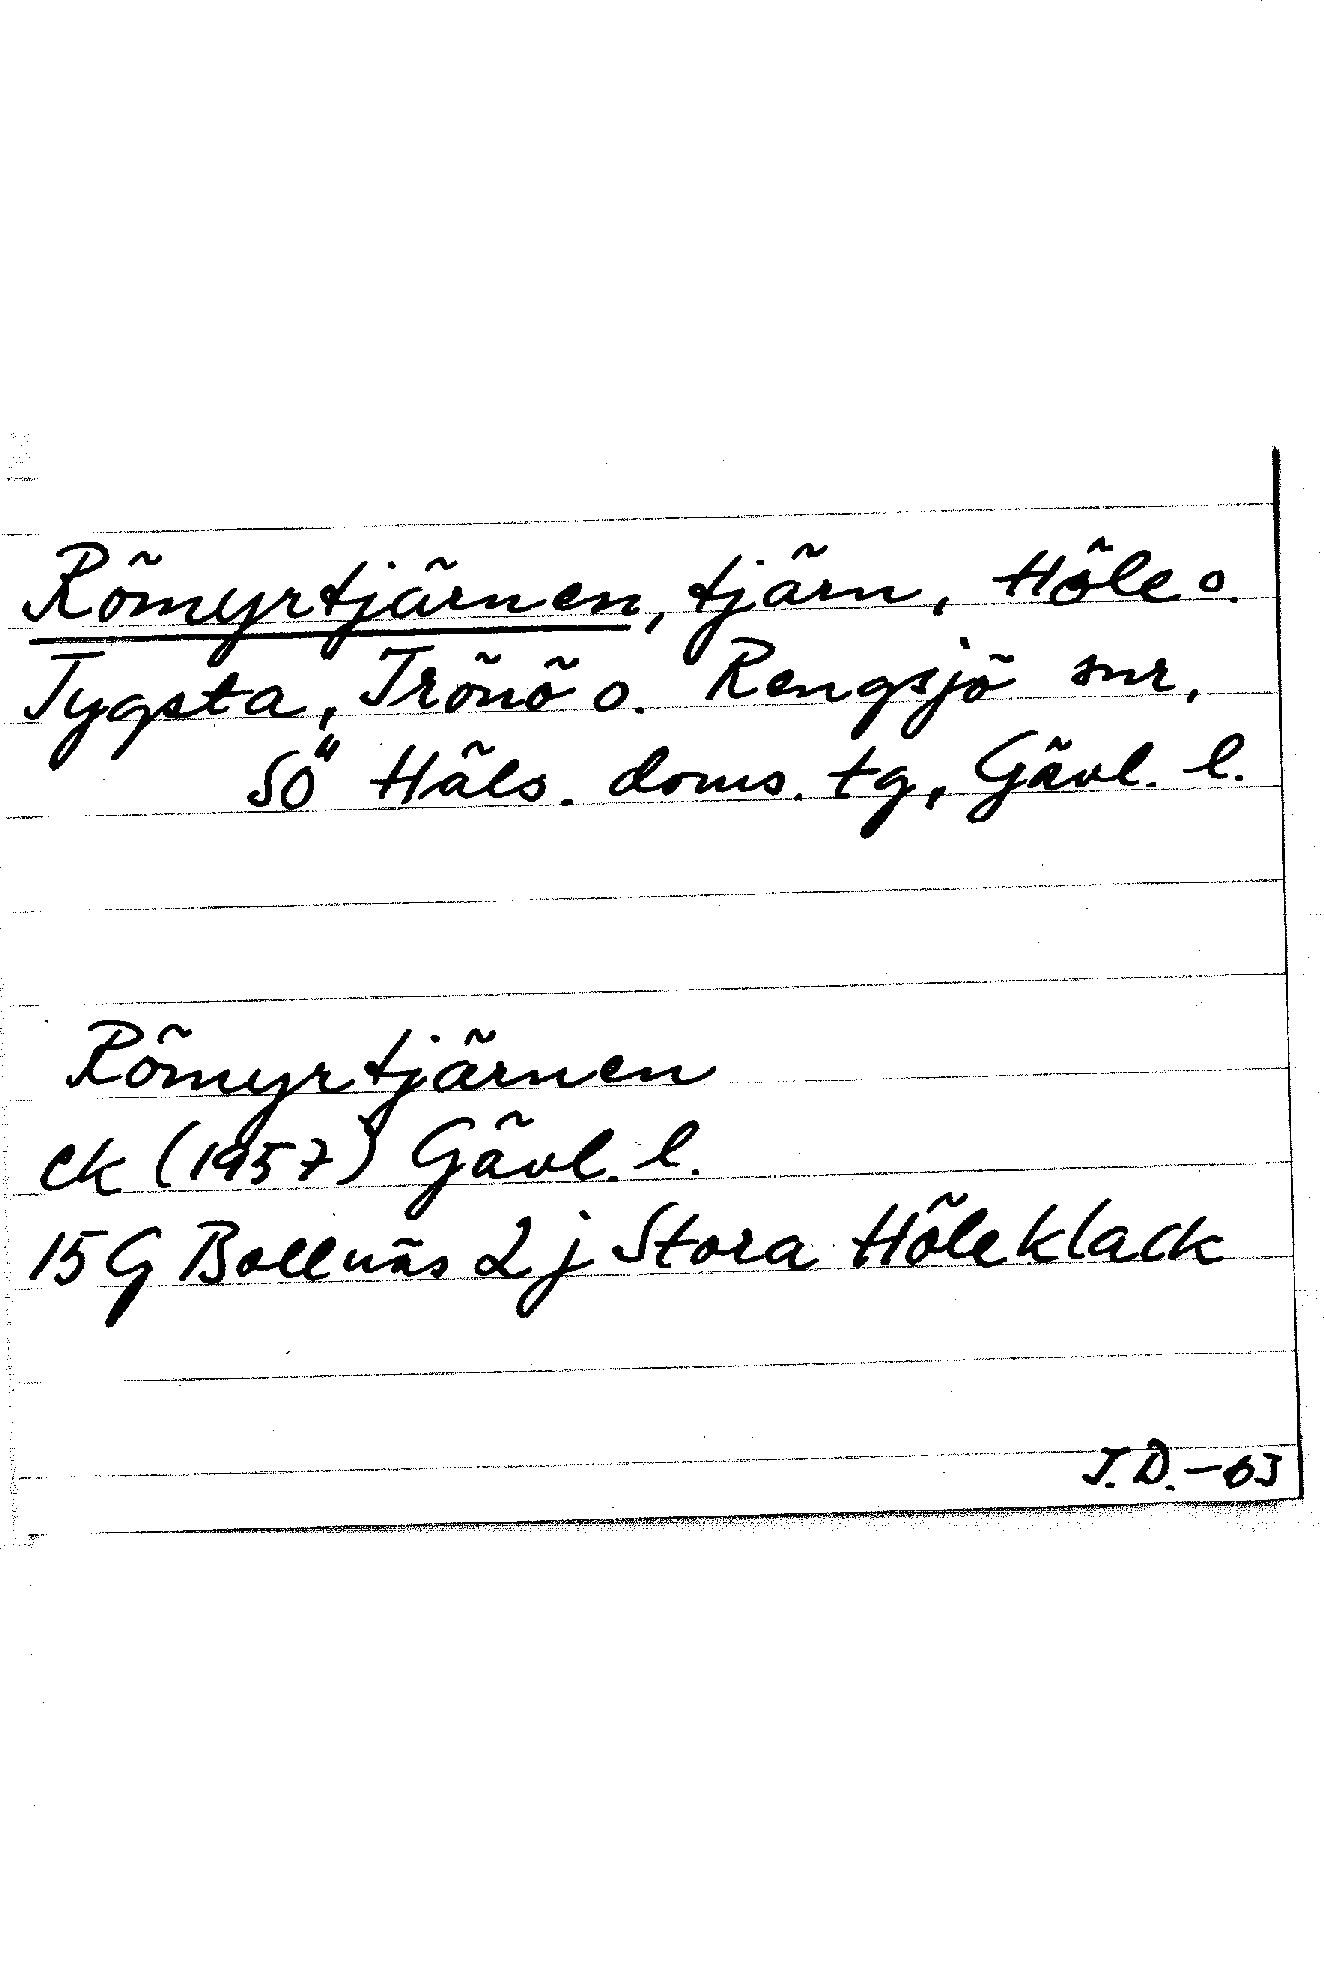 Römyrtjärnen, tjärn, Höle o.
Tygsta, Trönö o. Rengsjö snr,
Sö Häls. doms. tg, Gävl. l.
Römyrtjärnen
ek (1957) Gävl. l.
15 G Bollnäs 2 j Stora Höleklack
J.D. -63